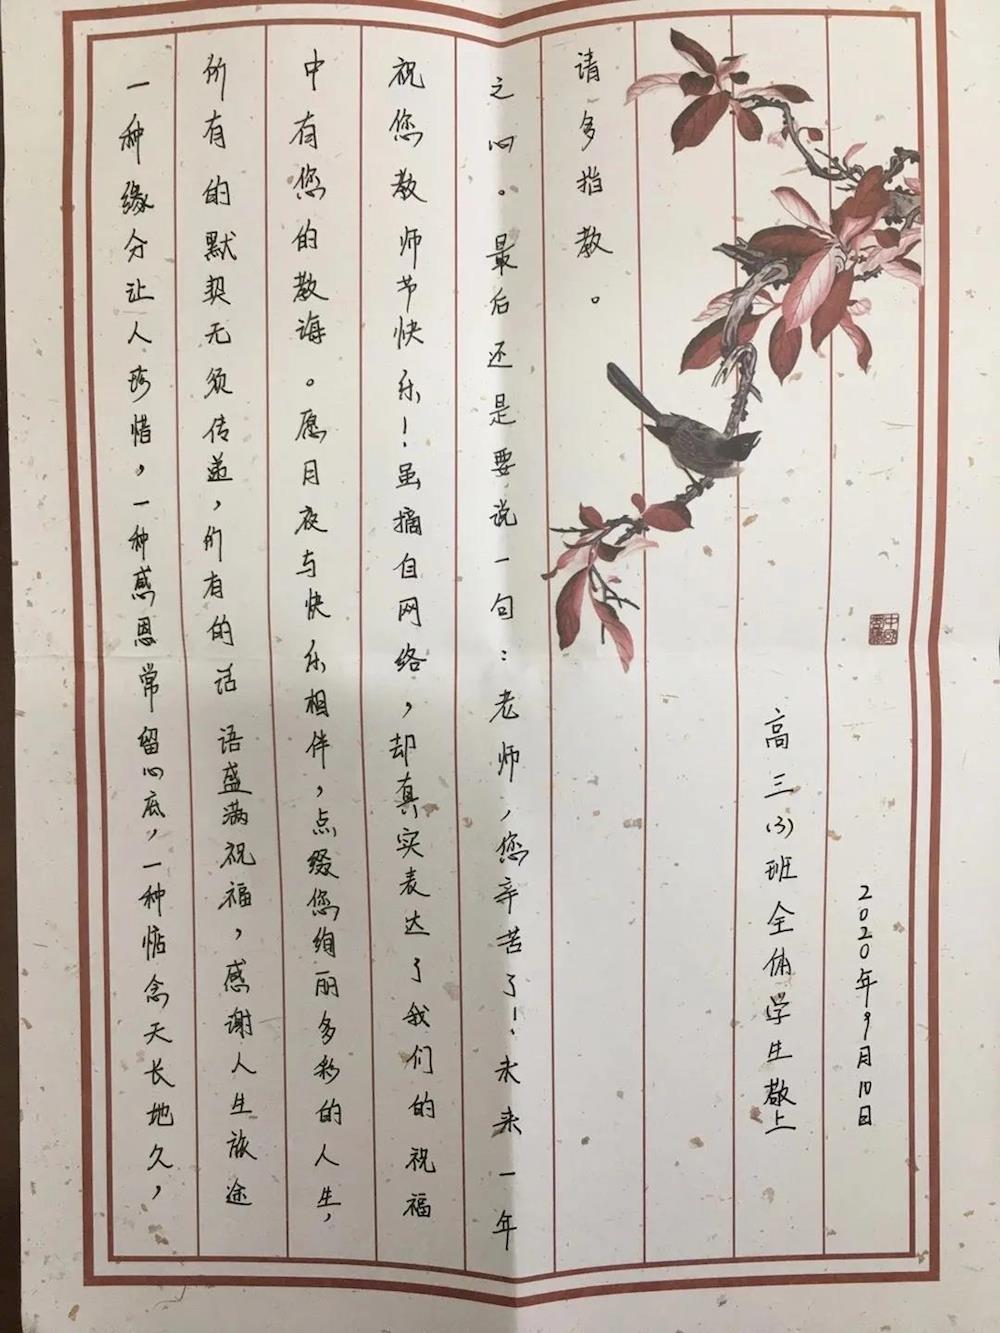 一种缘分让人珍惜，一种感恩常留心底，一种惦念天长地久，
所有的默契无须传递，所有的话语盛满祝福，感谢人生旅途
中有您的教诲。愿月夜与快乐相伴，点缀您绚丽多彩的人生，
祝您教师节快乐！虽摘自网络，却真实表达了我们的祝福
之心。最后还是要说一句：老师，您辛苦了！未来一年
请多指教。
高三(3)班全体学生敬上
2020年9月10日